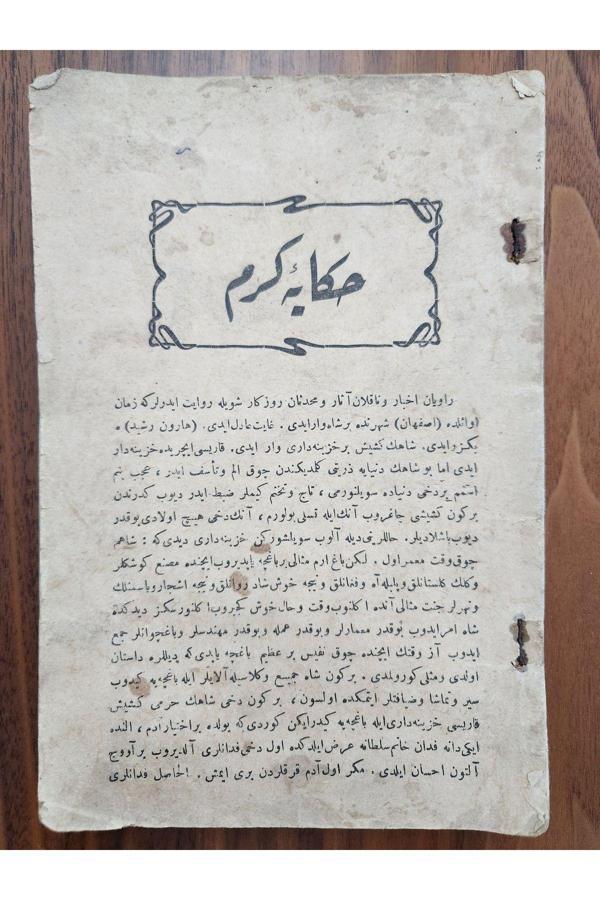 حكایۀ كرم
راویان اخبار و ناقلان آثار و محدثان روزكار شویله روایت ایدرلركه زمان
اوائلده (اصفهان) شهرنده برشاه وارایدی. غایت عادل ایدی. (هارون رشید) ه
بكزر ایدی. شاهك كشیش برخزینه‌داری وار ایدی. قاریسی ایچریده خزینه‌دار
ایدی اما بو شاهك دنیایه ذریتی كلمدیكندن چوق الم وتأسف ایدر، عجب بنم
اسمم بردخی دنیاده سویلنورمی، تاج وتختم كیملر ضبط ایدر دیوب كدرندن
بركون كشیشی چاغیروب آنك ایله تسلی بولورم، آنك دخی هیچ اولادی یوقدر
دیوب باشلادیلر. حاللرینی دیله آلوب سویلشوركن خزینه‌داری دیدی كه: شاهم
چوق وقت معمر اول. لكن باغ ارم مثالی برباغچه یاپدیروب ایچنده مصنع كوشكلر
وكلك كلستانلق وبلبله آه وفغانلق ونیجه خوش شاد روانلق ونیجه اشجار ویاسمنلك
ونهرلر جنت مثالی آنده اكلنوب وقت وحال خوش كچیروب اكلنورسكز دیدكده
شاه امر ایدوب نوقدر معمارلر ونوقدر عمله ونوقدر مهندسلر وباغچوانلر جمع
ایدوب آز وقتك ایچنده چوق نفیس بر عظیم باغچه یاپدی كه دیللره داستان
اولدی ومثلی كورولمدی. بركون شاه جمیع وكلاسیله آلایلر ایله باغچه‌یه كیدوب
سیر وتماشا وضیافتلر ایتمكده اولسون، بركون دخی شاهك حرمی كشیش
قاریسی خزینه‌داری ایله باغچه‌یه كیدرایكن كوردی كه یولده بر اختیار آدم، النده
ایكی دانه فدان خانم سلطانه عرض ایلدكده اول دخی فدانلری آلدیروب بر آووج
آلتون احسان ایلدی. مكر اول آدم قرقلردن بری ایمش. الحاصل فدانلری